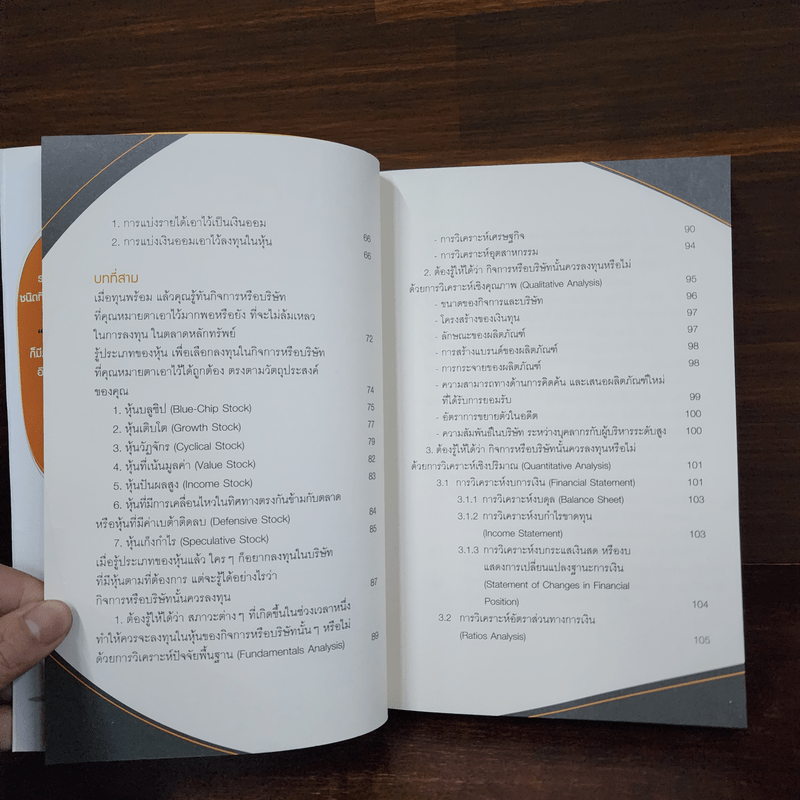 ชนิดที่
ก็มี
1. การแบ่งรายได้เอาไว้เป็นเงินออม 66
2. การแบ่งเงินออมเอาไว้ลงทุนในหุ้น 66
บทที่สาม
เมื่อทุนพร้อม แล้วคุณรู้ทันกิจการหรือบริษัท
ที่คุณหมายตาเอาไว้มากพอหรือยัง ที่จะไม่ล้มเหลว
ในการลงทุน ในตลาดหลักทรัพย์ 72
รู้ประเภทของหุ้น เพื่อเลือกลงทุนในกิจการหรือบริษัท
ที่คุณหมายตาเอาไว้ได้ถูกต้อง ตรงตามวัตถุประสงค์
ของคุณ 74
1. หุ้นบลูชิป (Blue-Chip Stock) 75
2. หุ้นเติบโต (Growth Stock) 77
3. หุ้นวัฏจักร (Cyclical Stock) 79
4. หุ้นที่เน้นมูลค่า (Value Stock) 82
5. หุ้นปันผลสูง (Income Stock) 83
6. หุ้นที่มีการเคลื่อนไหวในทิศทางตรงกันข้ามกับตลาด
หรือหุ้นที่มีค่าเบต้าติดลบ (Defensive Stock) 84
7. หุ้นเก็งกำไร (Speculative Stock) 85
เมื่อรู้ประเภทของหุ้นแล้ว ใครๆ ก็อยากลงทุนในบริษัท
ที่มีหุ้นตามที่ต้องการ แต่จะรู้ได้อย่างไรว่า
กิจการหรือบริษัทนั้นควรลงทุน 87
1. ต้องรู้ให้ได้ว่า สภาวะต่างๆ ที่เกิดขึ้นในช่วงเวลาหนึ่ง
ทำให้ควรจะลงทุนในหุ้นของกิจการหรือบริษัทนั้นๆ หรือไม่
ด้วยการวิเคราะห์ปัจจัยพื้นฐาน (Fundamentals Analysis) 89
- การวิเคราะห์เศรษฐกิจ 90
- การวิเคราะห์อุตสาหกรรม 94
2. ต้องรู้ให้ได้ว่า กิจการหรือบริษัทนั้นควรลงทุนหรือไม่
ด้วยการวิเคราะห์เชิงคุณภาพ (Qualitative Analysis) 95
- ขนาดของกิจการและบริษัท 96
- โครงสร้างของเงินทุน 97
- ลักษณะของผลิตภัณฑ์ 97
- การสร้างแบรนด์ของผลิตภัณฑ์ 98
- การกระจายของผลิตภัณฑ์ 98
- ความสามารถทางด้านการคิดค้น และเสนอผลิตภัณฑ์ใหม่
ที่ได้รับการยอมรับ 99
- อัตราการขยายตัวในอดีต 100
- ความสัมพันธ์ในบริษัท ระหว่างบุคลากรกับผู้บริหารระดับสูง 100
3. ต้องรู้ให้ได้ว่า กิจการหรือบริษัทนั้นควรลงทุนหรือไม่
ด้วยการวิเคราะห์เชิงปริมาณ (Quantitative Analysis) 101
3.1 การวิเคราะห์งบการเงิน (Financial Statement) 101
3.1.1 การวิเคราะห์งบดุล (Balance Sheet) 103
3.1.2 การวิเคราะห์งบกำไรขาดทุน
(Income Statement) 103
3.1.3 การวิเคราะห์งบกระแสเงินสด หรืองบ
แสดงการเปลี่ยนแปลงฐานะการเงิน
(Statement of Changes in Financial
Position) 104
3.2 การวิเคราะห์อัตราส่วนทางการเงิน
(Ratios Analysis) 105